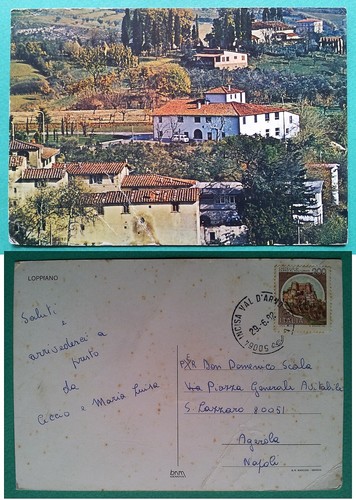 LOPPIANO
Saluti
e
arrivederci a
presto
da
Ciccio e Maria Luisa
INCISA VAL D'ARNO
50064
29.-6.
200
Don Domenico Scala
Via Piazza Generali Avitabile
S Lazzaro 80051
Agerola
Napoli
bnm